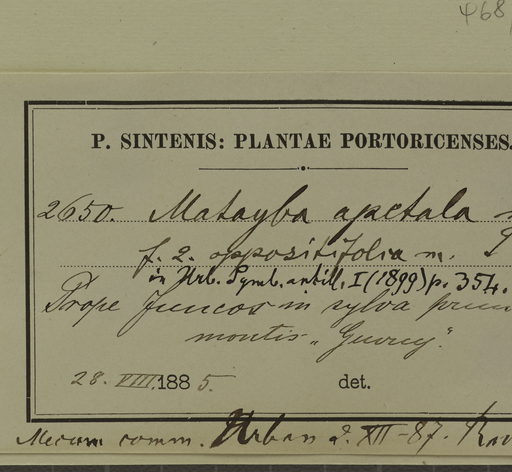 468
P. SINTENIS: PLANTAE PORTORICENSES.
2650. Matayba apetala
f. 2. oppositifolia m.
in Urb. Symb. antill. I (1899) p. 354.
Prope Juncos in sylva
montis „Guruy".
28. VIII. 1885.
det.
Mecum comm. Urban 2. XII-87.